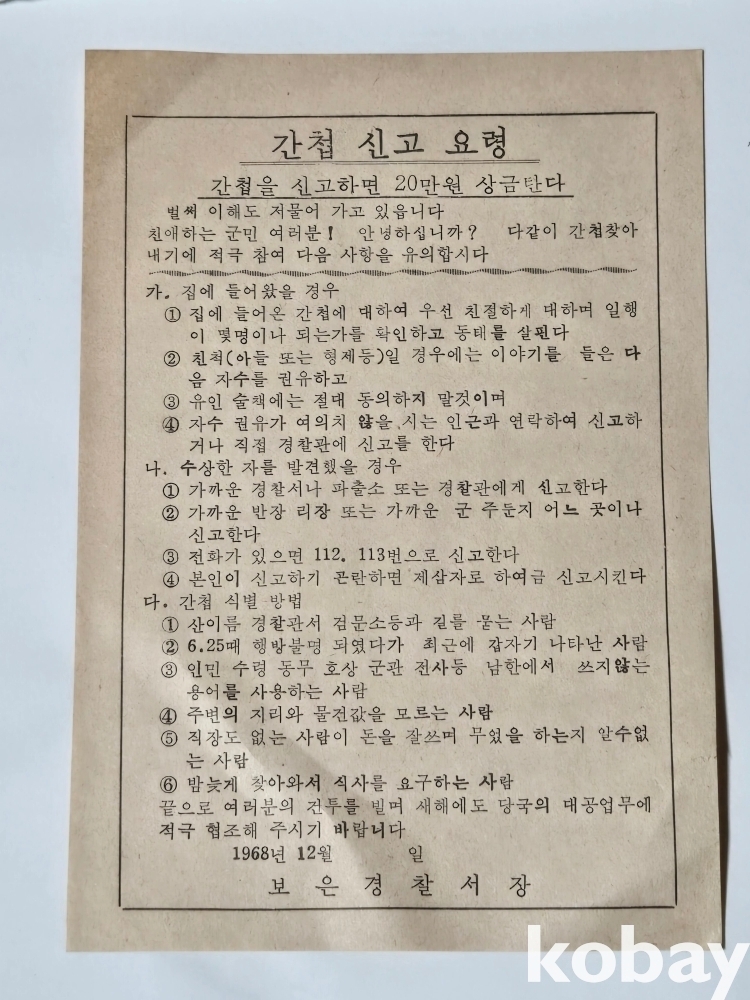 간첩 신고 요령
간첩을 신고하면 20만원 상금탄다
벌써 이해도 저물어 가고 있읍니다
친애하는 군민 여러분! 안녕하십니까? 다같이 간첩찾아
내기에 적극 참여 다음 사항을 유의합시다
가. 집에 들어왔을 경우
① 집에 들어온 간첩에 대하여 우선 친절하게 대하며 일행
이 몇명이나 되는가를 확인하고 동태를 살핀다
② 친척(아들 또는 형제등)일 경우에는 이야기를 들은 다
음 자수를 권유하고
③ 유인 술책에는 절대 동의하지 말것이며
④ 자수 권유가 여의치 않을 시는 인근과 연락하여 신고하
거나 직접 경찰관에 신고를 한다
나. 수상한 자를 발견했을 경우
① 가까운 경찰서나 파출소 또는 경찰관에게 신고한다
② 가까운 반장 리장 또는 가까운 군 주둔지 어느 곳이나
신고한다
③ 전화가 있으면 112. 113번으로 신고한다
④ 본인이 신고하기 곤란하면 제삼자로 하여금 신고시킨다
다. 간첩 식별 방법
① 산이름 경찰관서 검문소등과 길를 묻는 사람
② 6.25때 행방불명 되였다가 최근에 갑자기 나타난 사람
③ 인민 수령 동무 호상 군관 전사등 남한에서 쓰지않는
용어를 사용하는 사람
④ 주변의 지리와 물건값을 모르는 사람
⑤ 직장도 없는 사람이 돈을 잘쓰며 무었을 하는지 알수없
는 사람
⑥ 밤늦게 찾아와서 식사를 요구하는 사람
끝으로 여러분의 건투를 빌며 새해에도 당국의 대공업무에
적극 협조해 주시기 바랍니다
1968년 12월 일
보은경찰서장
kobay